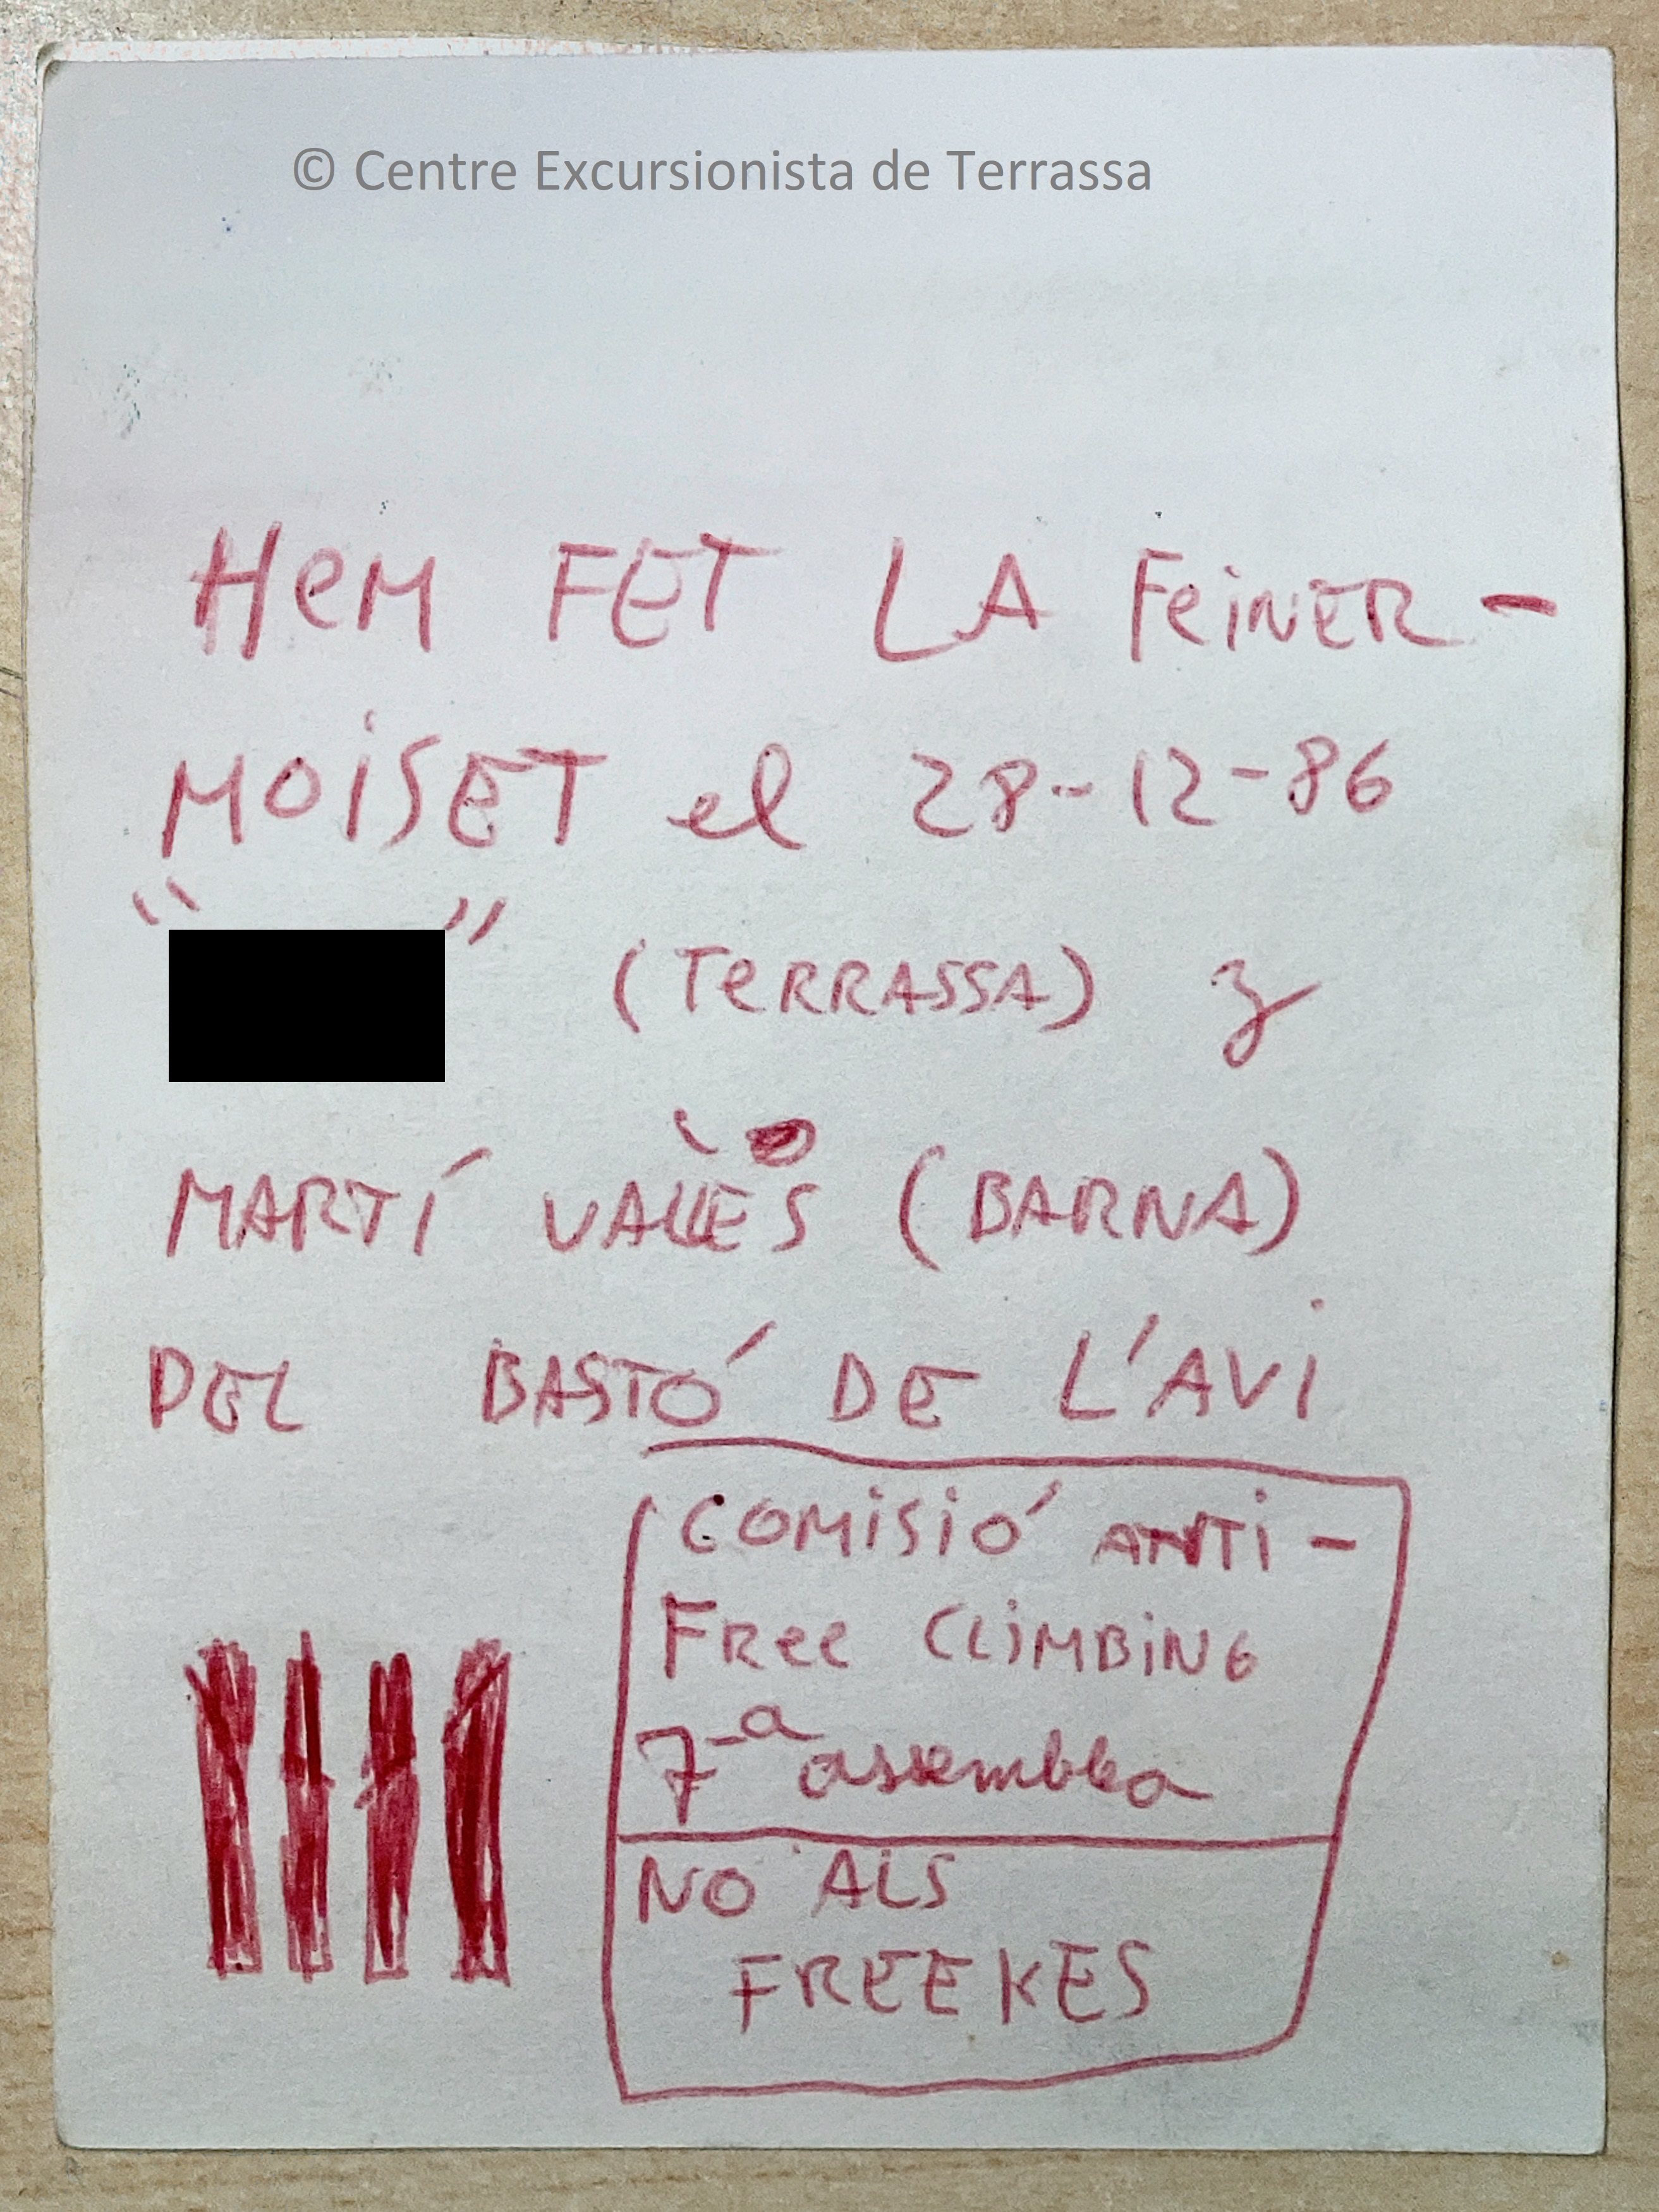 © Centre Excursionista de Terrassa
HeM FET LA FeiNER-
MOiSET el 28-12-86
“ ” (TeRRASSA) y
MARTÍ VALLÈS (BARNA)
DEL BASTÓ DE L'AVI
COMiSiÓ ANTi-
FRee CLiMBiNG
7-ª assemblea
NO ALS
FREEKES